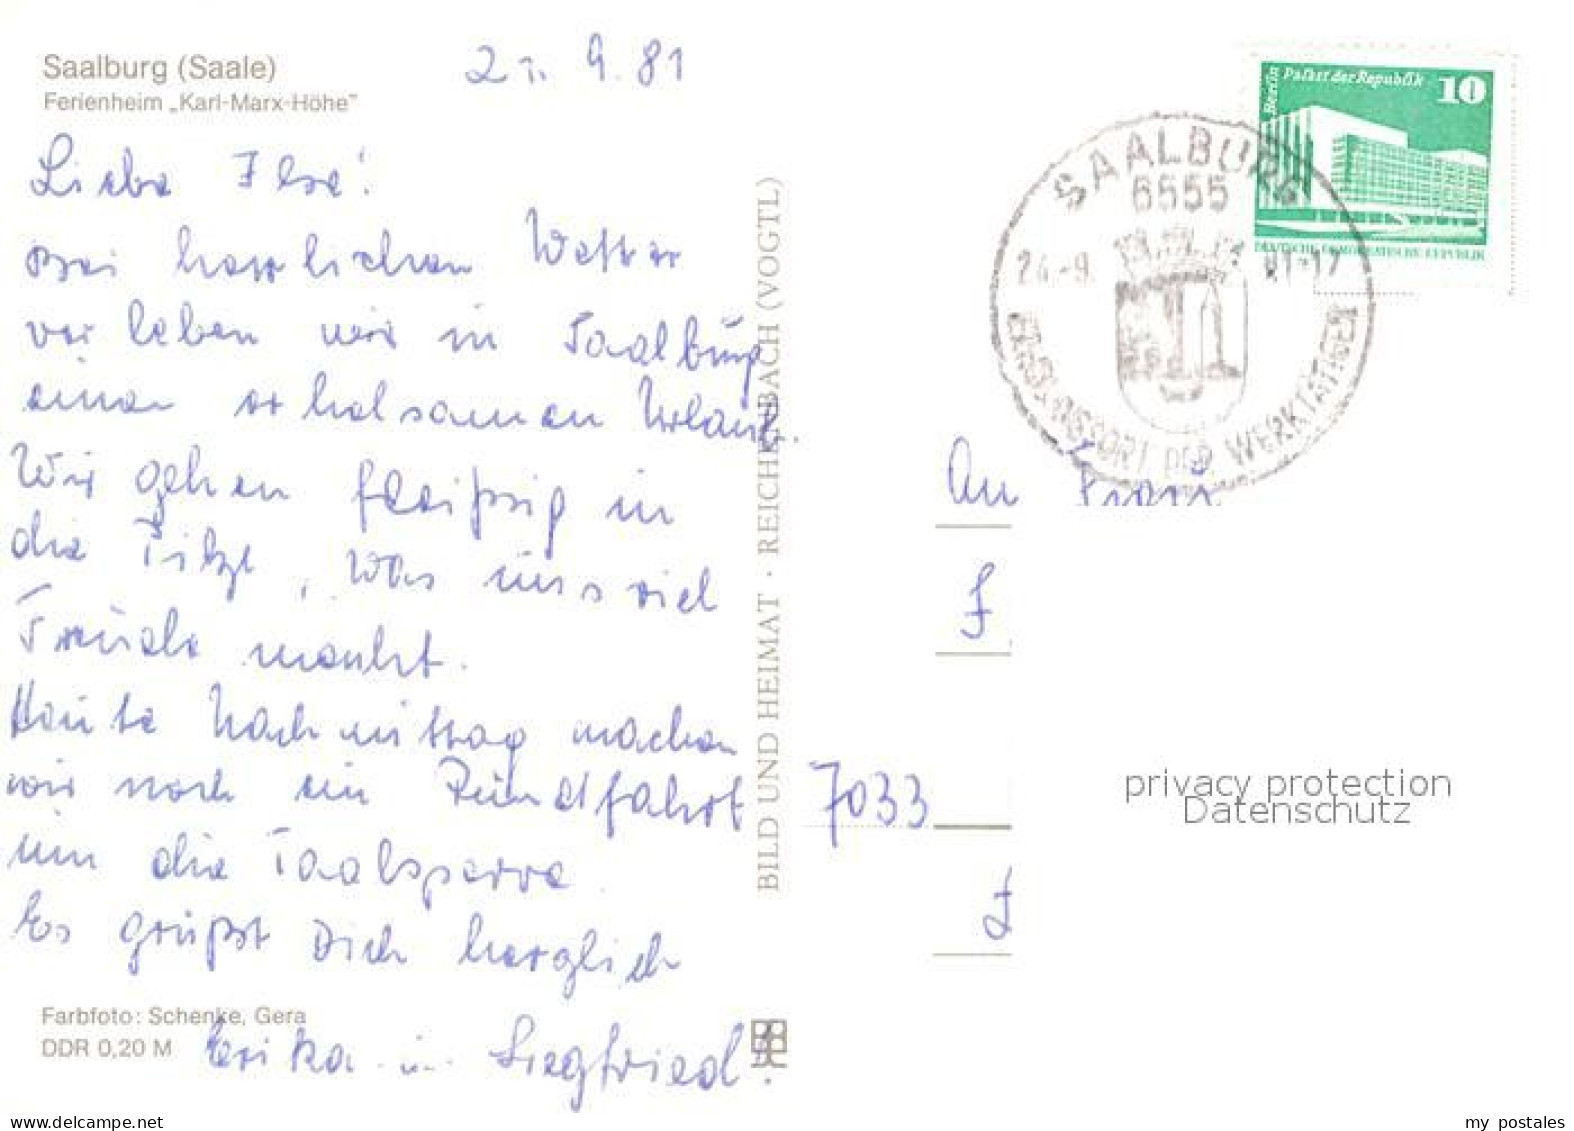 Saalburg (Saale)
Ferienheim „Karl-Marx-Höhe"
9. 81
Liebe Ilse!
Bei herrlichem Wetter
verleben wir in Saalburg
einen erholsamen Urlaub.
Wir gehen fleißig in
die Pilze, was uns viel
Freude macht.
Heute Nachmittag machen
wir noch ein Rundfahrt
um die Saalsperre
Es grüßt Dich herzlich
Erika u. Siegfried!
Farbfoto: Schenke, Gera
DDR 0,20 M
BILD UND HEIMAT · REICHENBACH (VOGTL)
Berlin Palast der Republik 10
DEUTSCHE DEMOKRATISCHE REPUBLIK
SAALBURG
6555
24.-9. 81-17
ERHOLUNGSORT DER WERKTÄTIGEN
An Frau
7033
privacy protection
Datenschutz
delcampe.net
my postales